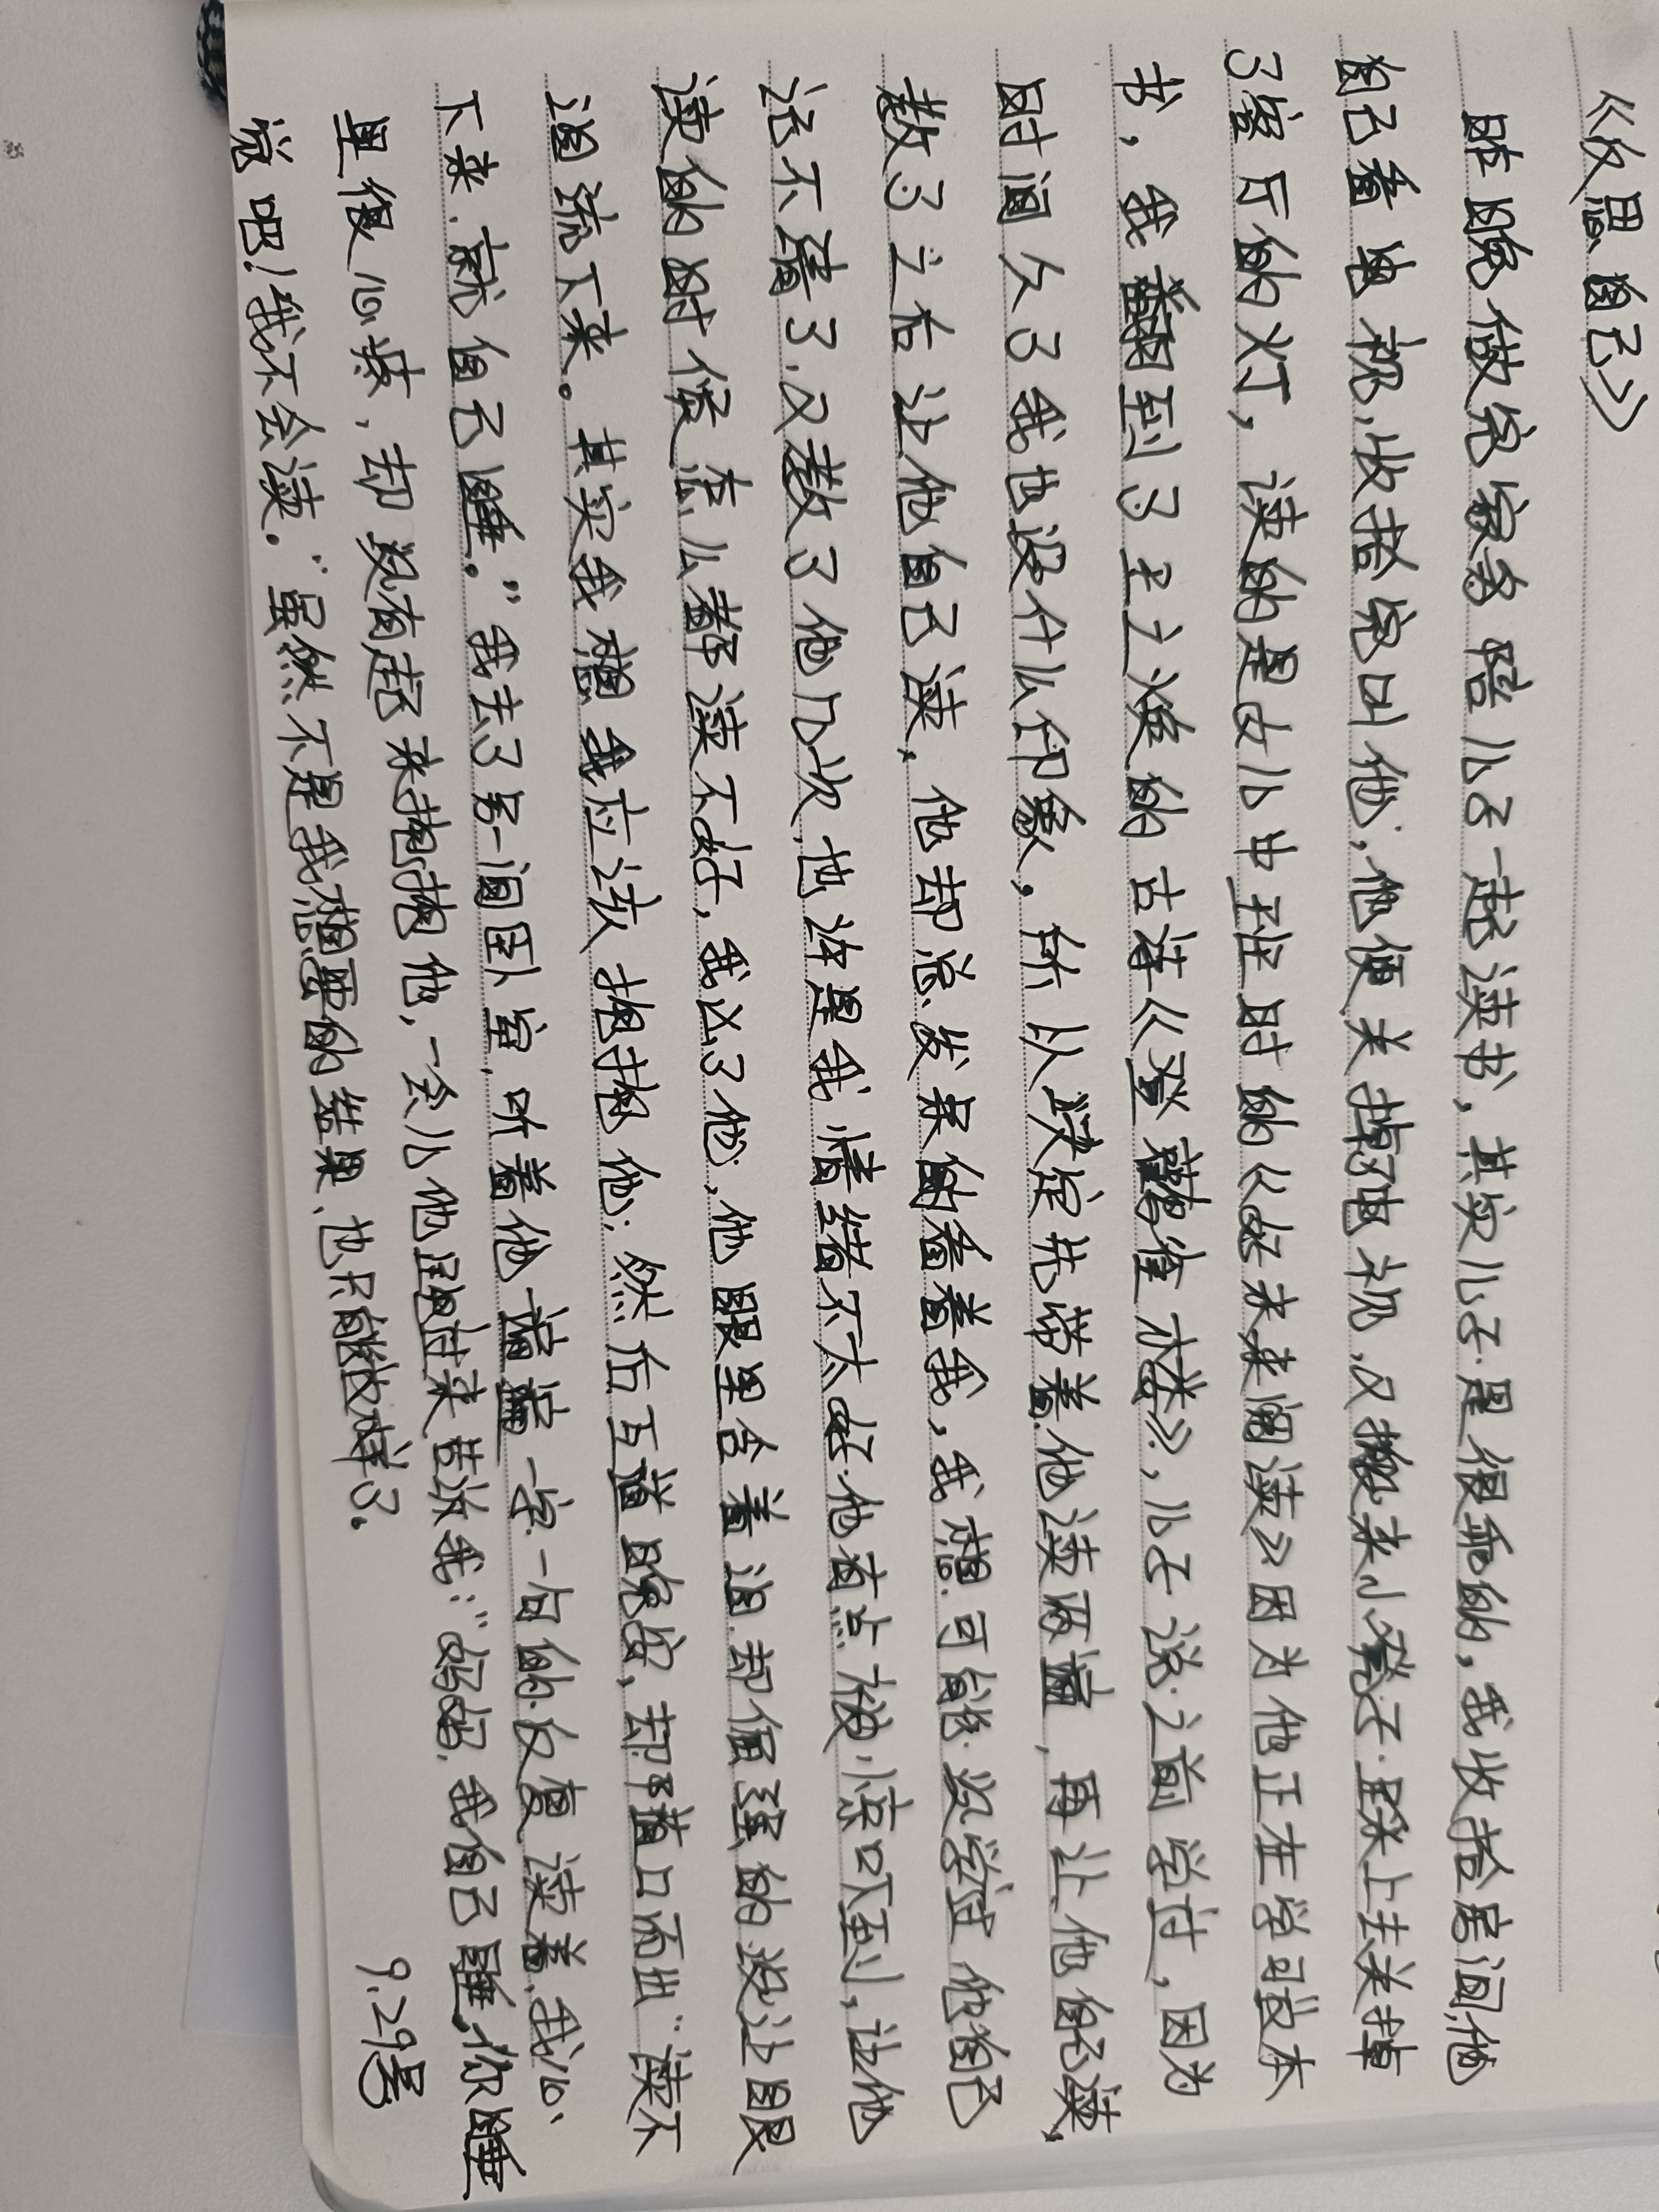 《反思自己》
昨晚做完家务陪儿子一起读书，其实儿子是很乖的，我收拾房间，他
自己看电视，收拾完叫他，他便关掉了电视，又搬来小凳子踩上去关掉
了客厅的灯，读的是女儿中班时的《好未来来阅读》因为他正在学习这本
书，我翻到了王之涣的古诗《登鹳雀楼》，儿子说之前学过，因为
时间久了我也没什么印象，所以决定先带着他读两遍，再让他自己读，
教了之后让他自己读，他却总发呆的看着我，我想可能没学过他自己
读不清了，又教了他几次，也许是我情绪不太好，他有点被惊吓到，让他
读的时候怎么都读不好，我凶了他，他眼里含着泪却倔强的没让眼
泪流下来。其实我想我应该抱抱他，然后互道晚安，却脱口而出“读不
下来，就自己睡。”我去了另一间卧室，听着他一遍遍一字一句的反复读着，我心
里很心疼，却没有起来抱抱他，一会儿他跑过来告诉我：“妈妈，我自己睡，你睡
觉吧！我不会读。”虽然不是我想要的结果，也只能这样了。
9.29号